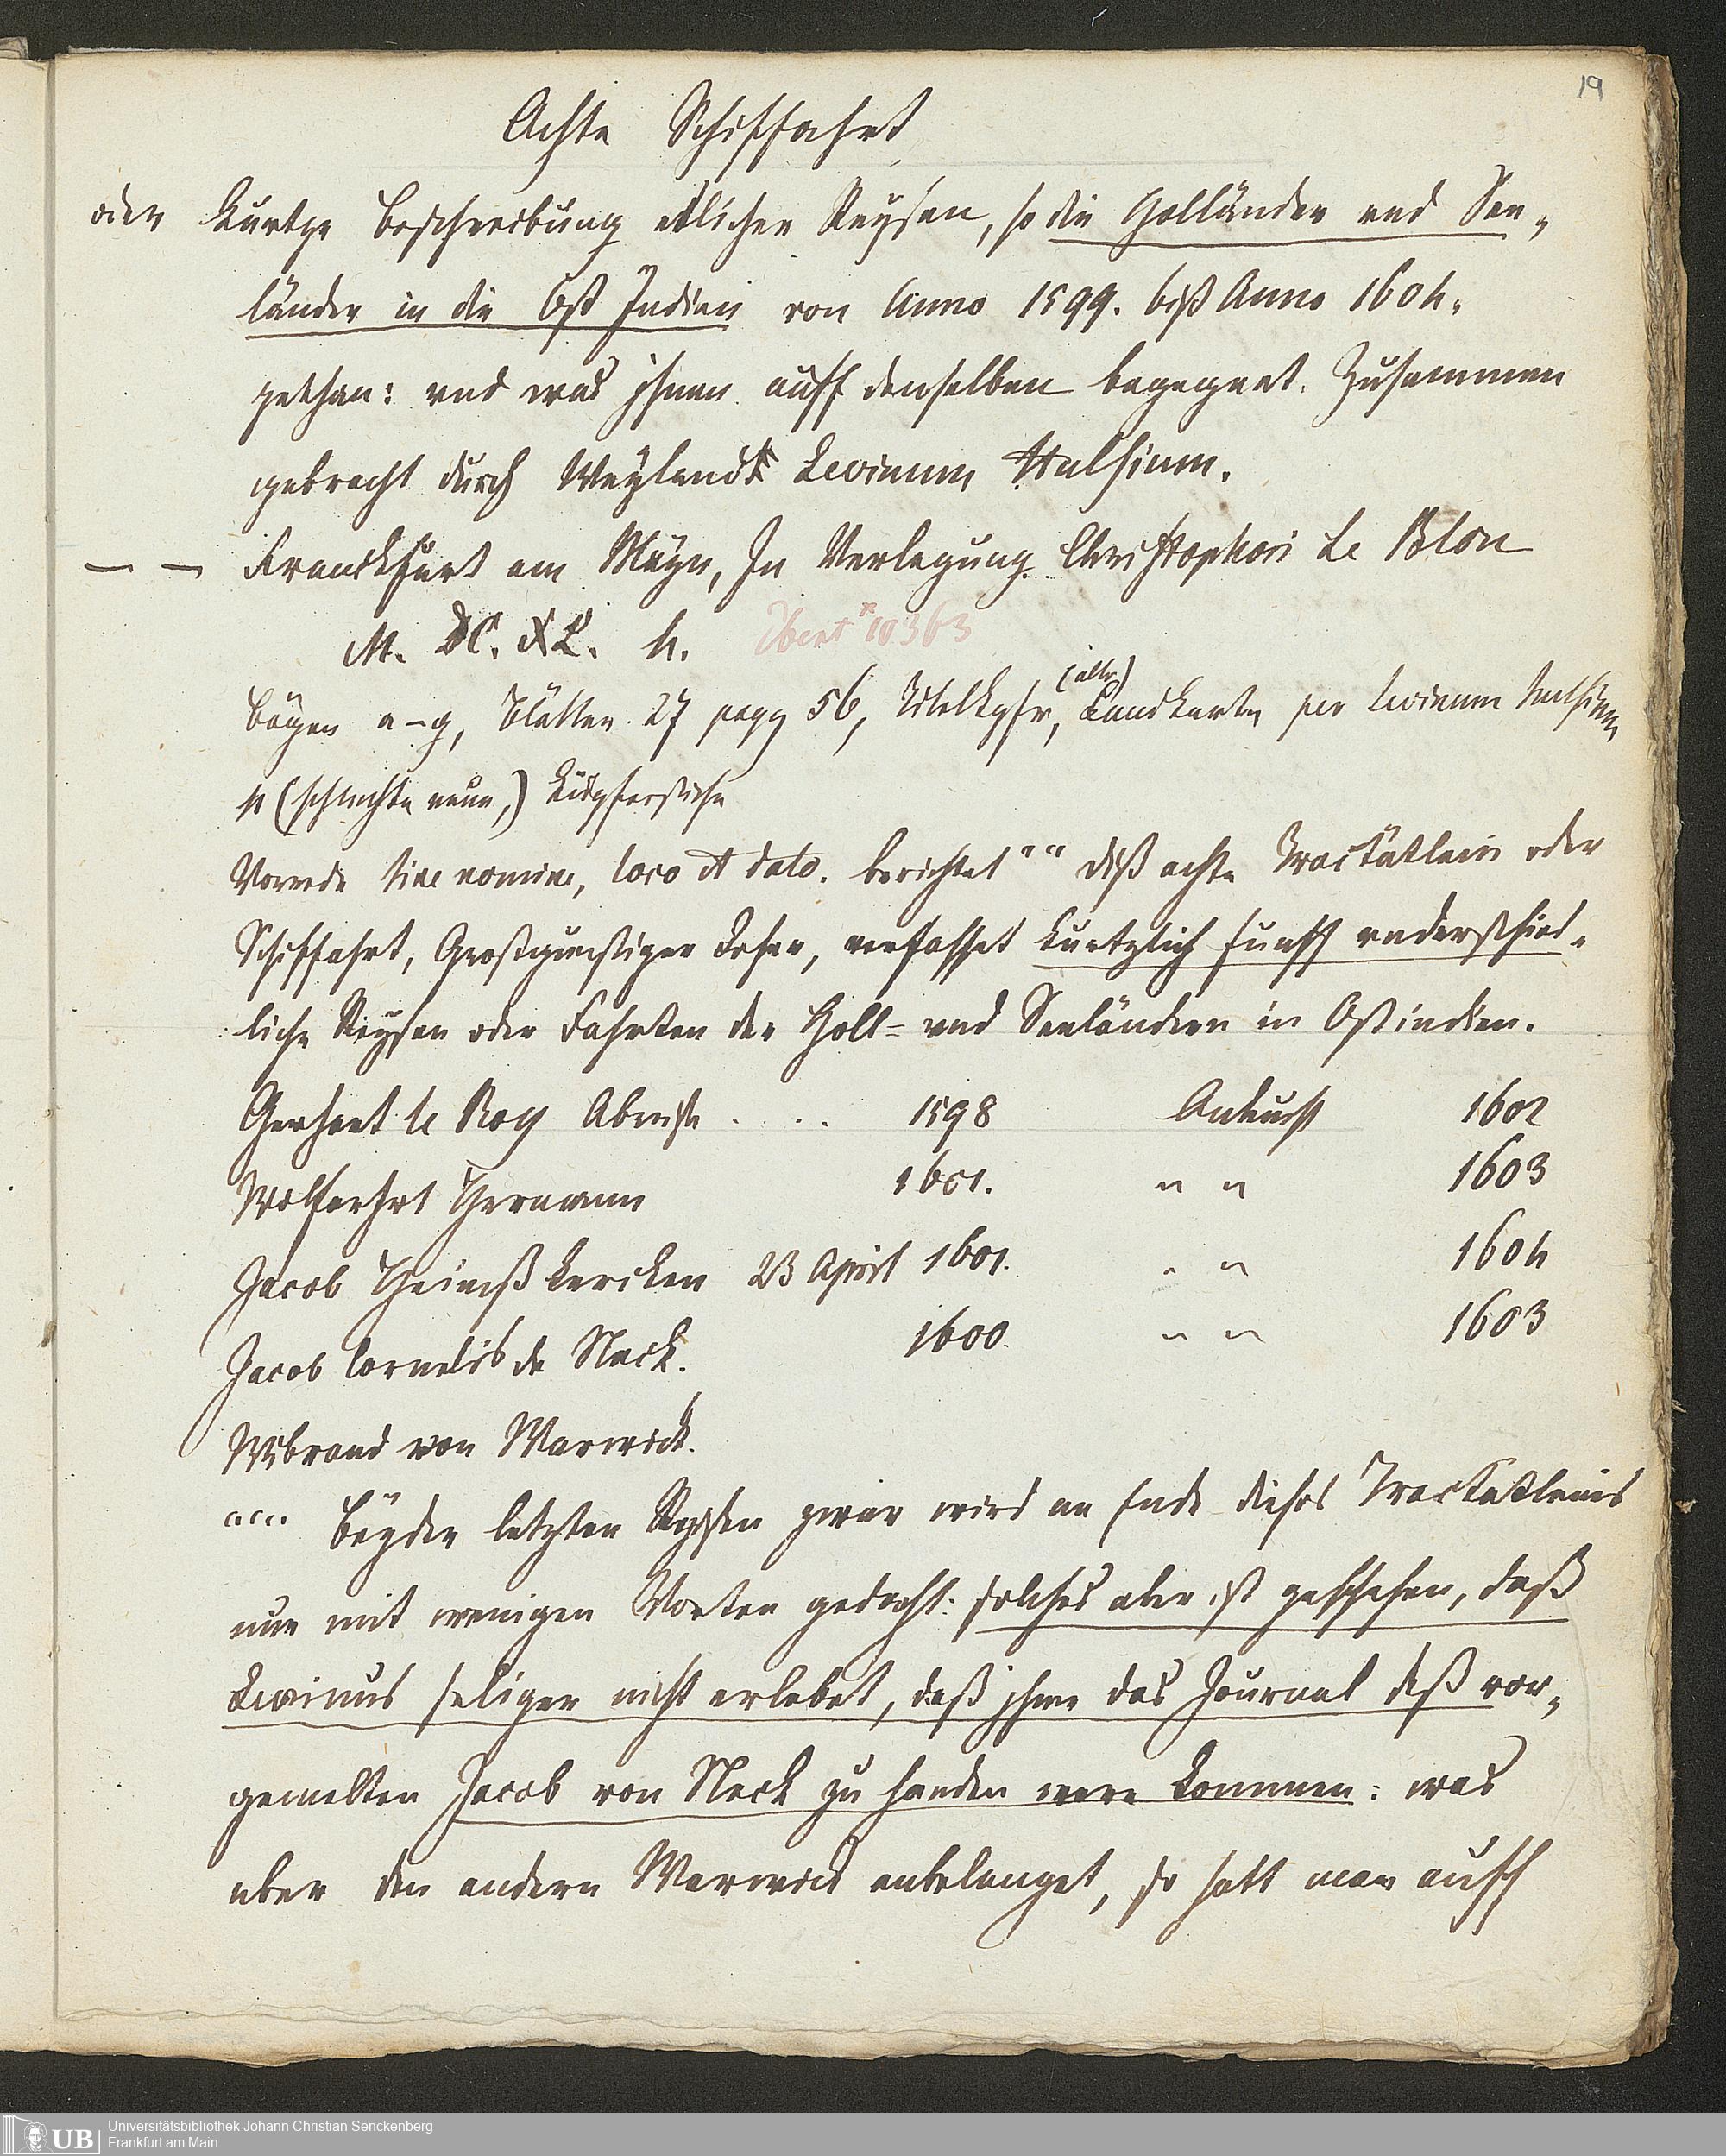 19
Achte Schiffahrt
oder Kurtze Beschreibung etlicher Reysen, so die Holländer vnd See„
länder in die Ost Indien von Anno 1599. biß Anno 1604.
gethan: vnd was jhnen auff denselben begegnet. Zusammen
gebracht durch Weylandt Levinum Hulsium.
— — Franckfurt am Mayn, In Verlegung Christophori Le Blon
M. DC. XL. 4.
Bögen a–g, Blätter 27 pagg 56, Titelkpfr, (alte) Landkarte per Levinum Hulsium
4 (schlechte neue,) Kupferstiche
Vorrede sine nomine, loco et dato. berichtet "" diß achte Tractätlein oder
Schiffahrt, Großgünstiger Leser, verfasset kurtzlich funff vnderschied„
liche Reysen oder Fahrten der Holl= vnd Seeländern in Ostindien.
Gerhart le Roy Abreise . . . 1598 Ankunft 1602
Wolfarhrt Hermann 1601. " " 1603
Jacob Heimß kercken 23 April 1601. " " 1604
Jacob Cornelis de Neck. 1600. " " 1603
Wibrand von Warwick.
"" Beyder letzten Reysen zwar wird an Ende dieses Tractätleins
nur mit wenigen Worten gedacht: solches aber ist geschehen, daß
Levinus seliger nicht erlebet, daß jhme das Journal deß vor„
gemelten Jacob von Neck zu handen were kommen: was
aber den andern Warwick anbelanget, so hatt man auff
Universitätsbibliothek Johann Christian Senckenberg
Frankfurt am Main
UB